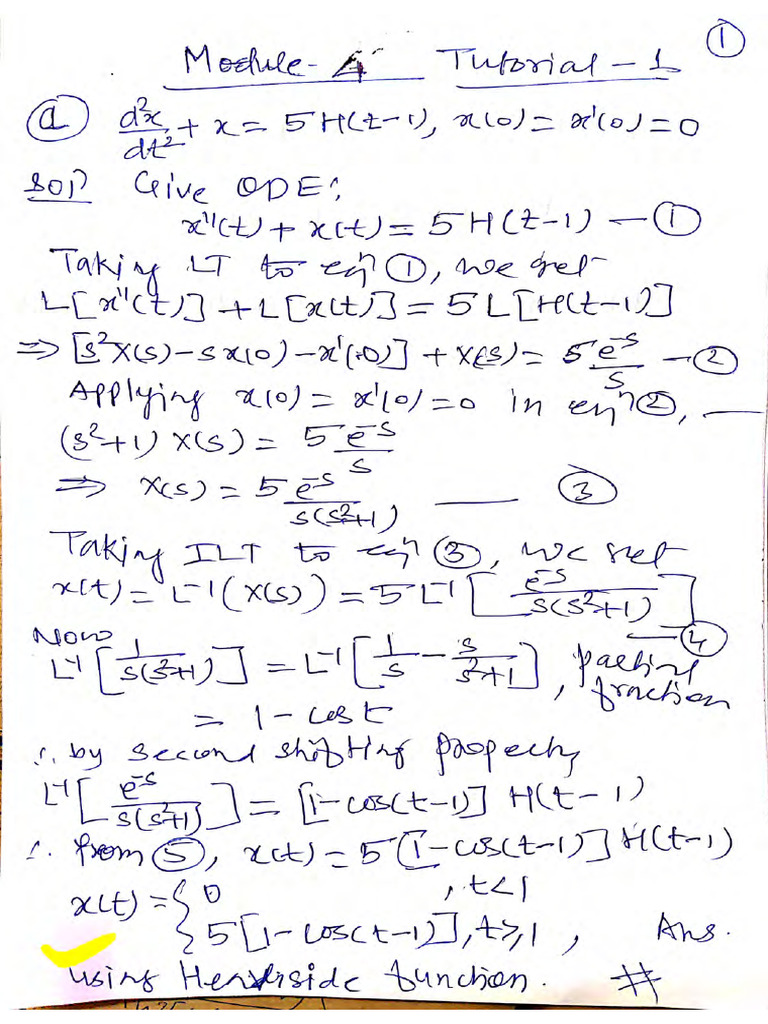 ①
Module-4 Tutorial-1
ⓐ d²x/dt² + x = 5H(t-1), x(0) = x'(0) = 0
Solⁿ Give ODE:
x''(t) + x(t) = 5H(t-1) — ①
Taking LT to eqⁿ ①, we get
L[x''(t)] + L[x(t)] = 5L[H(t-1)]
⇒ [s²X(s) - sx(0) - x'(0)] + X(s) = 5 e⁻ˢ/s — ②
Applying x(0) = x'(0) = 0 in eqⁿ ②, —
(s²+1) X(s) = 5 e⁻ˢ/s
⇒ X(s) = 5 e⁻ˢ/s(s²+1) — ③
Taking ILT to eqⁿ ③, we get
x(t) = L⁻¹(X(s)) = 5L⁻¹[e⁻ˢ/s(s²+1)] — ④
Now
L⁻¹[1/s(s²+1)] = L⁻¹[1/s - s/s²+1], partial fraction
= 1 - cos t
∴ by second shifting property
L⁻¹[e⁻ˢ/s(s²+1)] = [1-cos(t-1)] H(t-1)
∴ from ⑤, x(t) = 5[1-cos(t-1)] H(t-1)
x(t) = { 0 , t<1
5[1-cos(t-1)], t≥1, Ans.
using Heaviside function. #